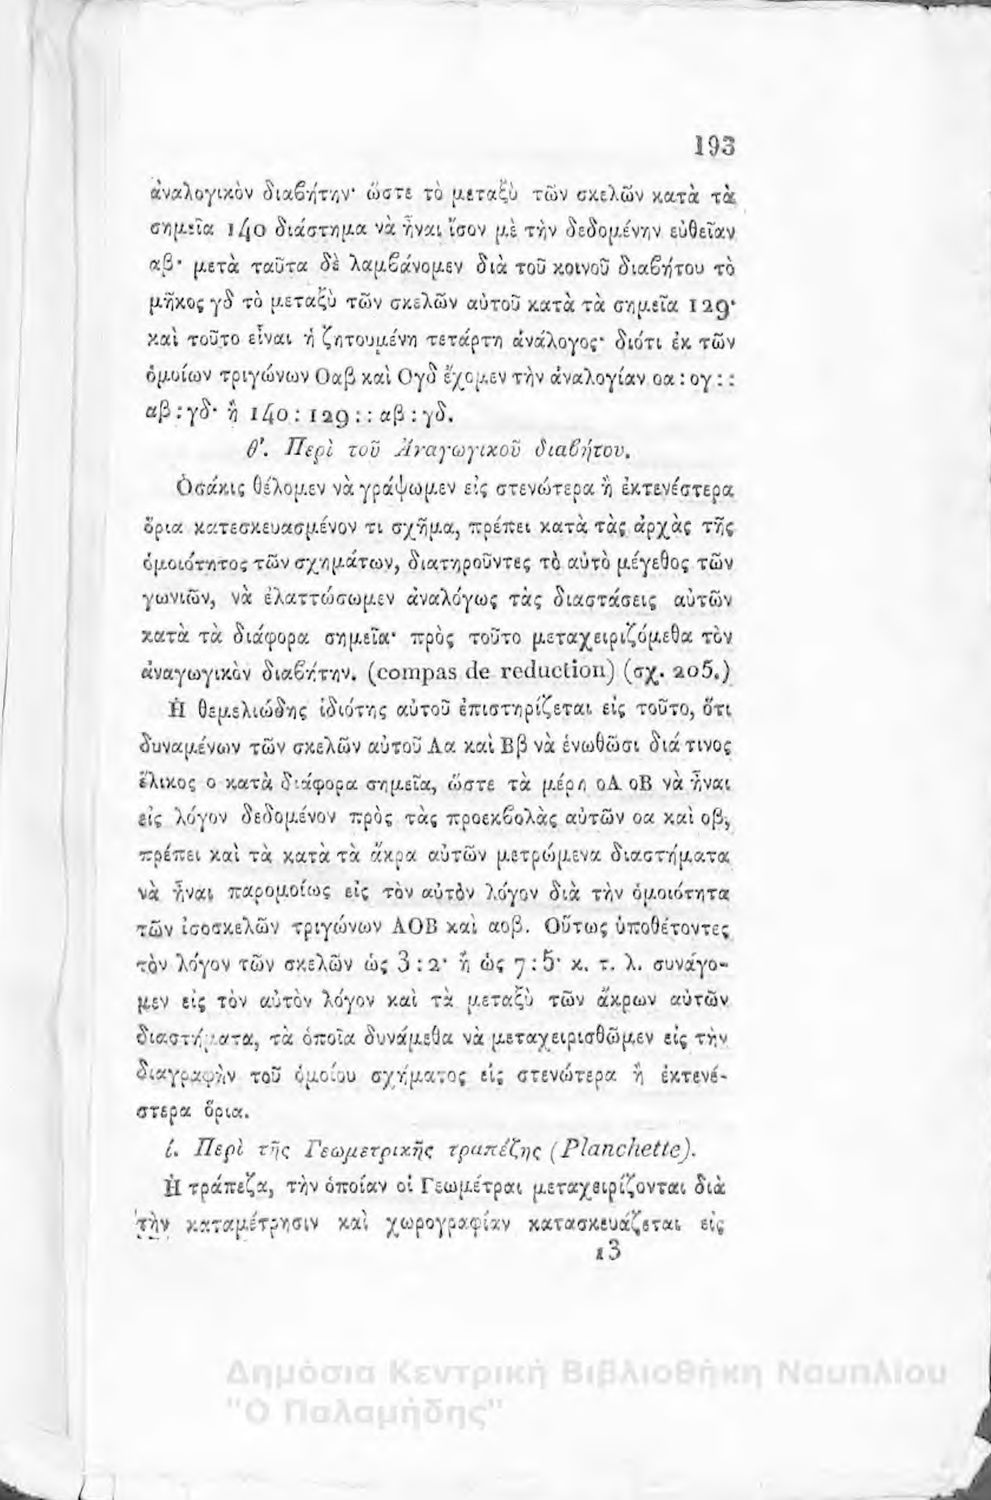 193
ἀναλογικὸν διαβήτην· ὥστε τὸ μεταξὺ τῶν σκελῶν κατὰ τὰ
σημεῖα 140 διάστημα νὰ ἦναι ἴσον μὲ τὴν δεδομένην εὐθεῖαν
αβ· μετὰ ταῦτα δὲ λαμβάνομεν διὰ τοῦ κοινοῦ διαβήτου τὸ
μῆκος γδ τὸ μεταξὺ τῶν σκελῶν αὐτοῦ κατὰ τὰ σημεῖα 129·
καὶ τοῦτο εἶναι ἡ ζητουμένη τετάρτη ἀνάλογος· διότι ἐκ τῶν
ὁμοίων τριγώνων Οαβ καὶ Ογδ ἔχομεν τὴν ἀναλογίαν οα : ογ : :
αβ : γδ· ἢ 140 : 129 : : αβ : γδ.
θ'. Περὶ τοῦ Ἀναγωγικοῦ διαβήτου.
Ὁσάκις θέλομεν νὰ γράψωμεν εἰς στενώτερα ἢ ἐκτενέστερα
ὅρια κατεσκευασμένον τι σχῆμα, πρέπει κατὰ τὰς ἀρχὰς τῆς
ὁμοιότητος τῶν σχημάτων, διατηροῦντες τὸ αὐτὸ μέγεθος τῶν
γωνιῶν, νὰ ἐλαττώσωμεν ἀναλόγως τὰς διαστάσεις αὐτῶν
κατὰ τὰ διάφορα σημεῖα· πρὸς τοῦτο μεταχειριζόμεθα τὸν
ἀναγωγικὸν διαβήτην. (compas de reduction) (σχ. 205.)
Ἡ θεμελιώδης ἰδιότης αὐτοῦ ἐπιστηρίζεται εἰς τοῦτο, ὅτι
δυναμένων τῶν σκελῶν αὐτοῦ Αα καὶ Ββ νὰ ἑνωθῶσι διά τινος
ἕλικος ο κατὰ διάφορα σημεῖα, ὥστε τὰ μέρη οΑ οΒ νὰ ἦναι
εἰς λόγον δεδομένον πρὸς τὰς προεκβολὰς αὐτῶν οα καὶ οβ,
πρέπει καὶ τὰ κατὰ τὰ ἄκρα αὐτῶν μετρώμενα διαστήματα
νὰ ἦναι παρομοίως εἰς τὸν αὐτὸν λόγον διὰ τὴν ὁμοιότητα
τῶν ἰσοσκελῶν τριγώνων ΑΟΒ καὶ αοβ. Οὕτως ὑποθέτοντες
τὸν λόγον τῶν σκελῶν ὡς 3 : 2· ἢ ὡς 7 : 5· κ. τ. λ. συνάγο-
μεν εἰς τὸν αὐτὸν λόγον καὶ τὰ μεταξὺ τῶν ἄκρων αὐτῶν
διαστήματα, τὰ ὁποῖα δυνάμεθα νὰ μεταχειρισθῶμεν εἰς τὴν
διαγραφὴν τοῦ ὁμοίου σχήματος εἰς στενώτερα ἢ ἐκτενέ-
στερα ὅρια.
ί. Περὶ τῆς Γεωμετρικῆς τραπέζης (Planchette).
Ἡ τράπεζα, τὴν ὁποίαν οἱ Γεωμέτραι μεταχειρίζονται διὰ
τὴν καταμέτρησιν καὶ χωρογραφίαν κατασκευάζεται εἰς
13
Δημόσια Κεντρική Βιβλιοθήκη Ναυπλίου
"Ο Παλαμήδης"